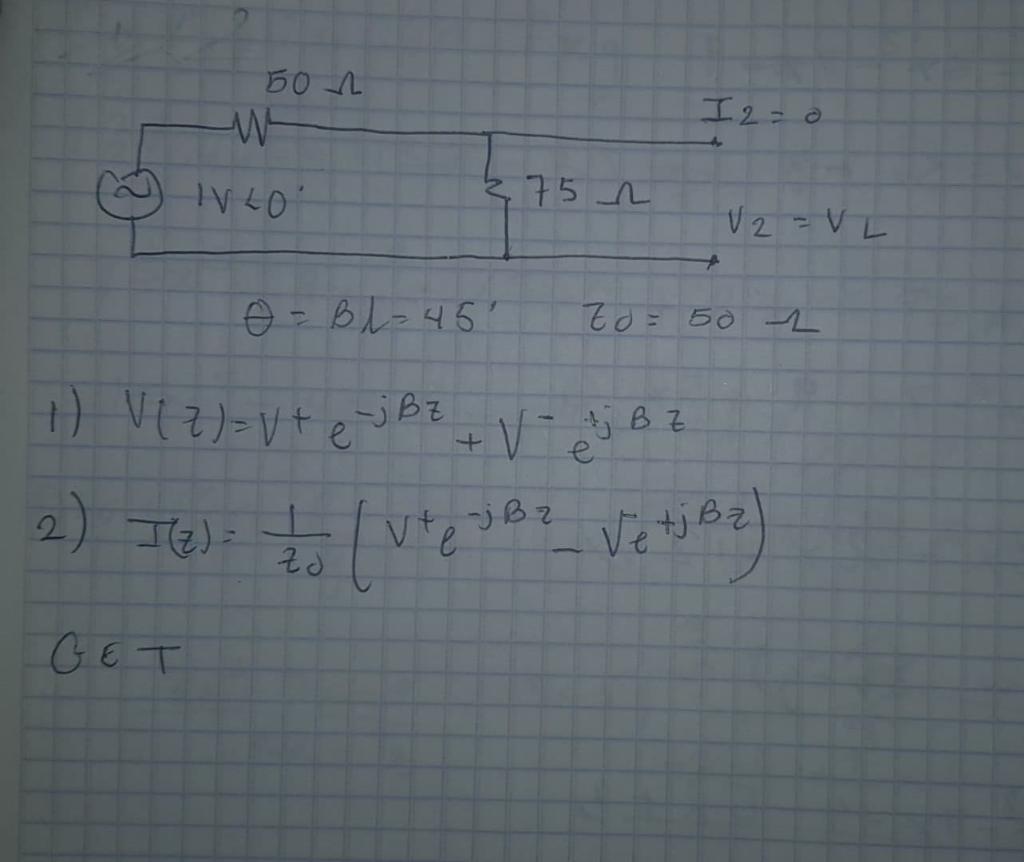 50 Ω
I2 = 0
1V<0°
75 Ω
V2 = VL
θ = Bl = 45° Z0 = 50 Ω
1) V(z) = V+ e^-jBz + V- e^+jBz
2) I(z) = 1/Z0 (V+ e^-jBz - V- e^+jBz)
GET